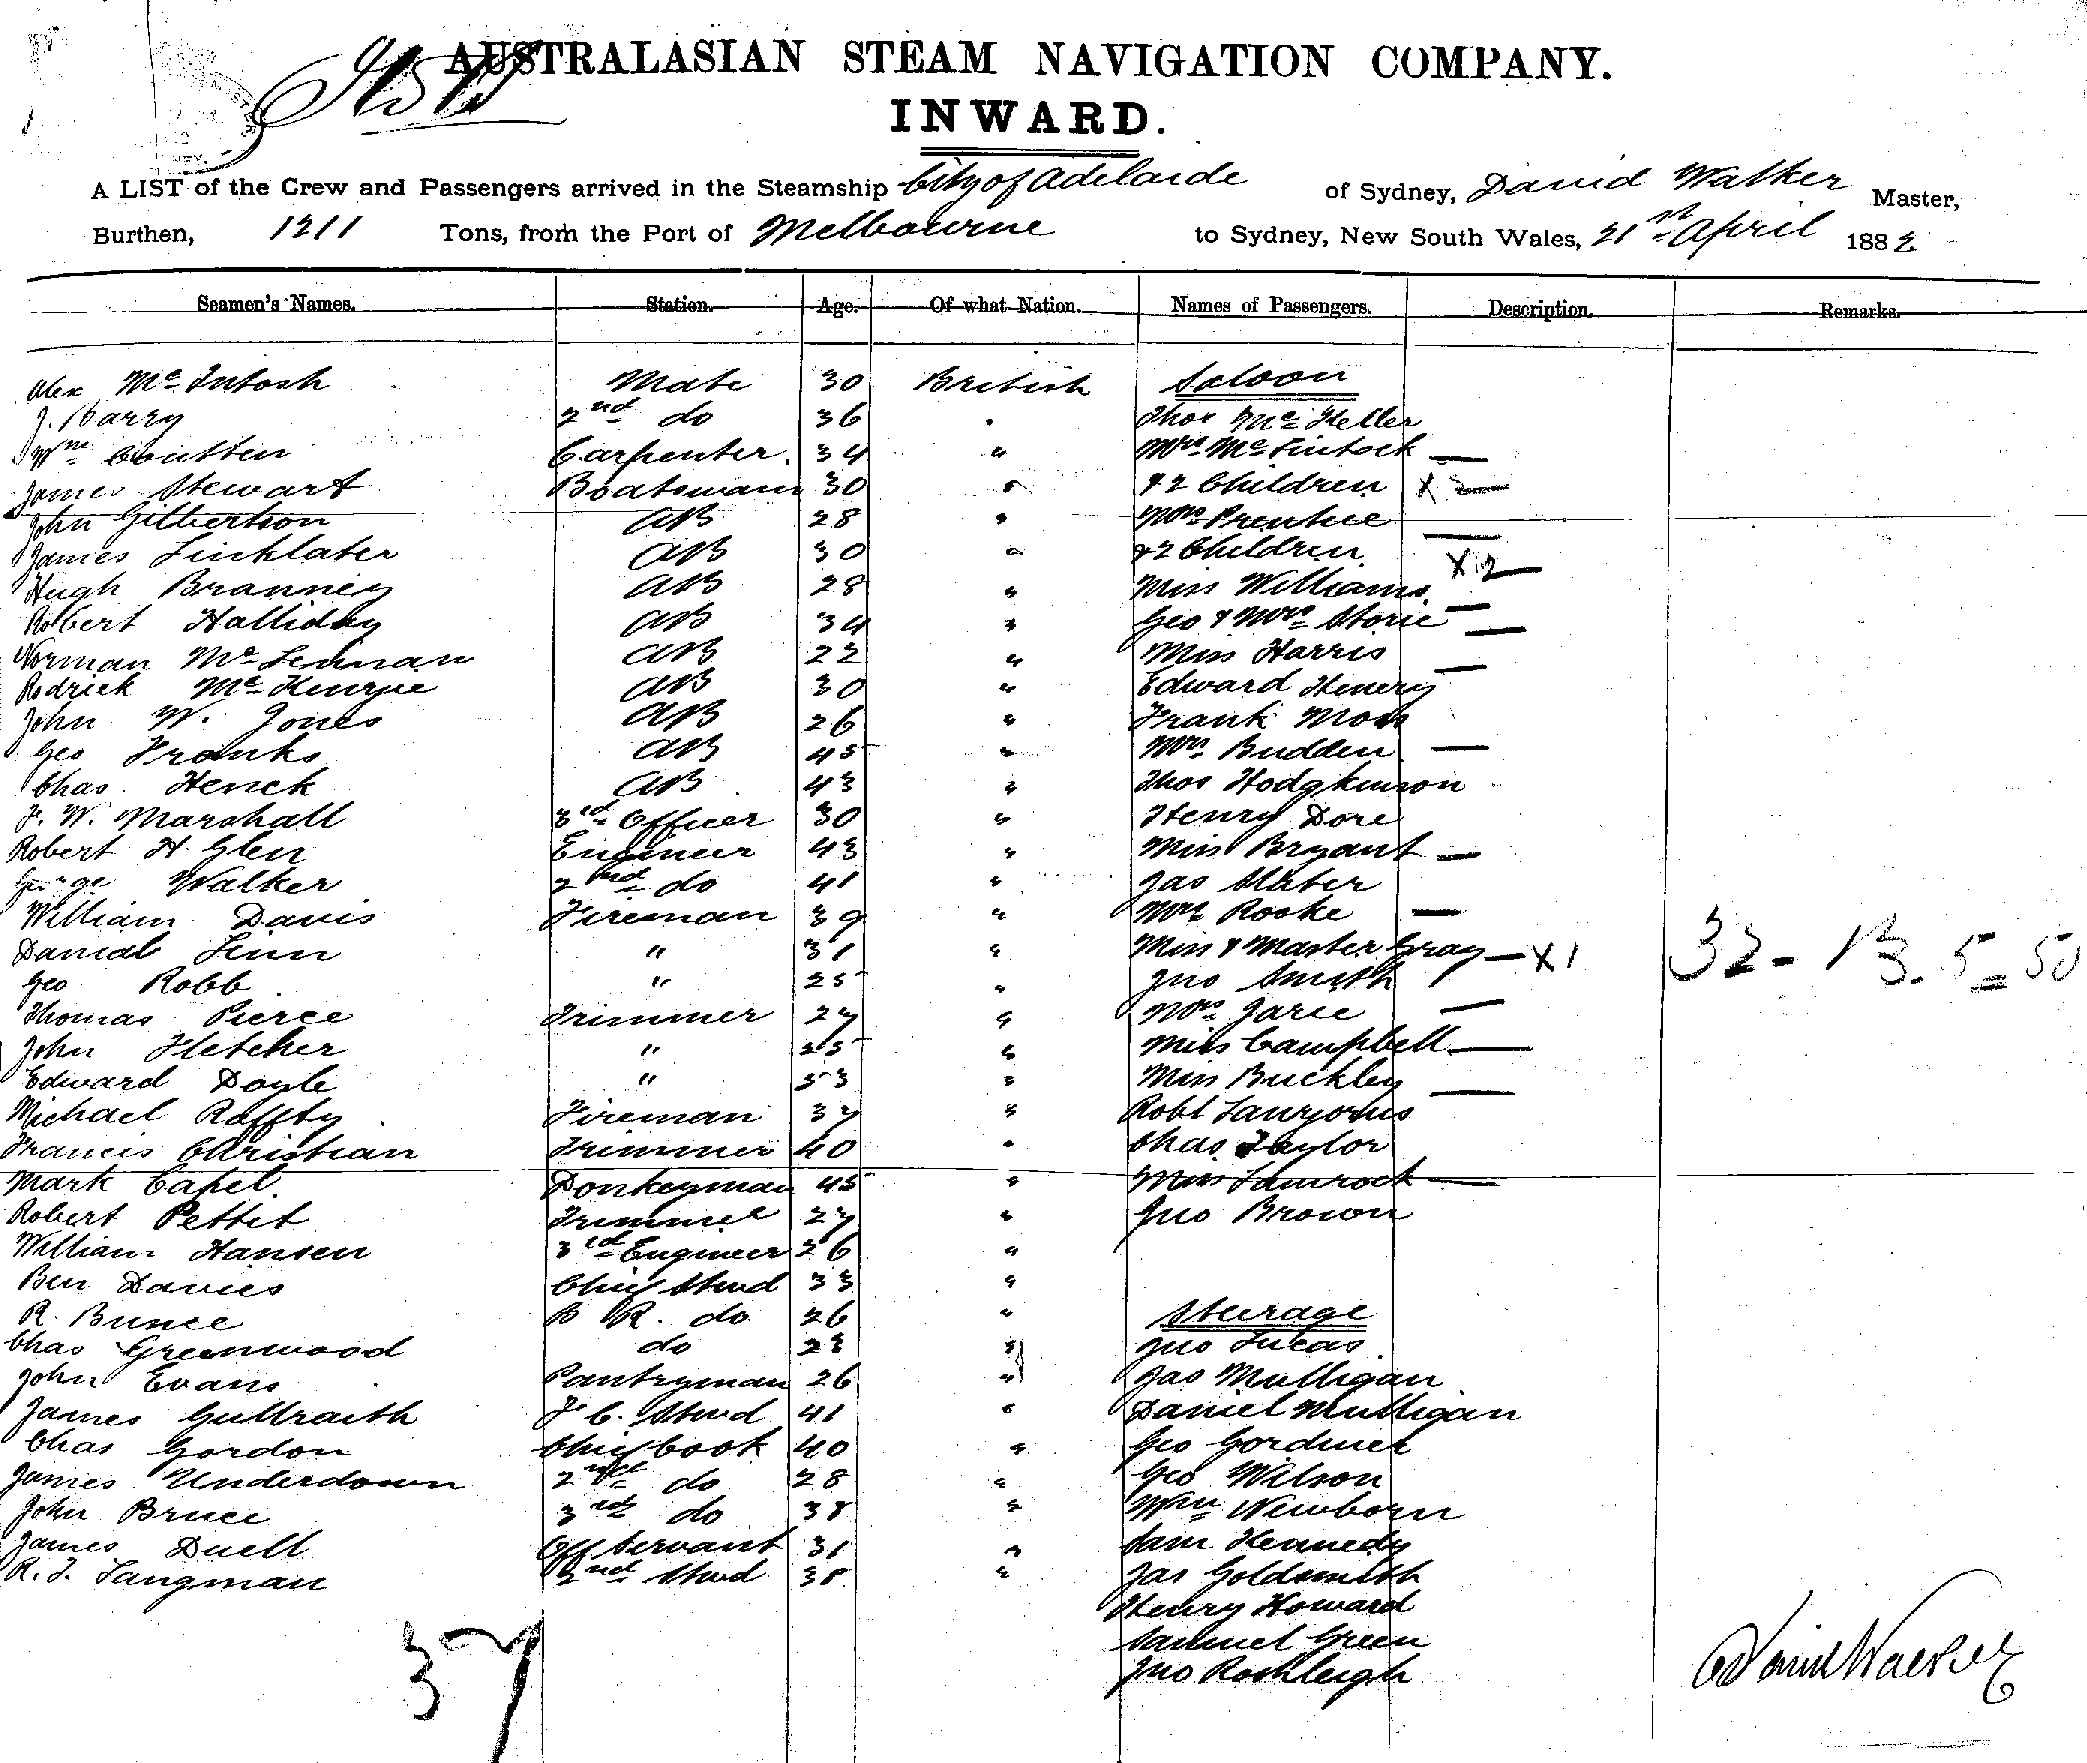 AUSTRALASIAN STEAM NAVIGATION COMPANY.
INWARD.
A LIST of the Crew and Passengers arrived in the Steamship City of Adelaide of Sydney, David Walker Master,
Burthen, 1211 Tons, from the Port of Melbourne to Sydney, New South Wales, 21st April 1882
Seamen's Names. Station. Age. Of what Nation. Names of Passengers. Description. Remarks.
Alex McIntosh Mate 30 British Saloon
J. Barry 2nd do 36 " Thos McKeller
Wm Coutten Carpenter. 34 " Mrs McLintock —
James Stewart Boatswain 30 " & 2 Children X 2 —
John Gilbertson AB 28 " Mrs Prentice —
James Linklater AB 30 " & 2 Children X 2 —
Hugh Branney AB 28 " Miss Williams —
Robert Halliday AB 34 " Geo & Mrs Storie —
Norman McLennan AB 22 " Miss Harris —
Rodrick McKenzie AB 30 " Edward Henery
John W. Jones AB 26 " Frank Moss
Geo Franks AB 45 " Mrs Budden —
Chas. Henck AB 43 " Thos Hodgkinson
F. W. Marshall 3rd Officer 30 " Henry Dore
Robert H Glen Engineer 43 " Miss Bryant —
George Walker 2nd do 41 " Jas Slater
William Davis Fireman 39 " Mrs Rooke —
Daniel Linn " 31 " Miss & Master Gray — X 1 32 - 13. 5 = 50
Geo Robb " 25 " Jno Smyth
Thomas Pierce Trimmer 27 " Mrs Jarie —
John Fletcher " 25 " Miss Campbell —
Edward Doyle " 53 " Miss Buckley —
Michael Raffty Fireman 37 " Robt
Francis Christian Trimmer 40 " Chas Taylor
Mark Capel. Donkeyman 45 " Miss Lamrock —
Robert Pettit Trimmer 27 " Jno Brown
William Hansen 3rd Engineer 26 "
Ben Davies Chief Stwd 33 "
R. Bunce B R. do 26 " Steerage
Chas Greenwood do 23 " Jno Lucas
John Evans Pantryman 26 " Jas Mulligan
James Gullraith F C. Stwd 41 " Daniel Mulligan
Chas Gordon Chief Cook 40 " Geo Gardiner
James Underdown 2nd do 28 " Geo Wilson
John Bruce 3rd do 38 " Wm Newborn
James Duell Off Servant 31 " Sam Kennedy
R. J. Langman 2nd Stwd 38 " Jas Goldsmith
Henry Howard
Samuel Green
Jno Rashleigh
37
David Walker